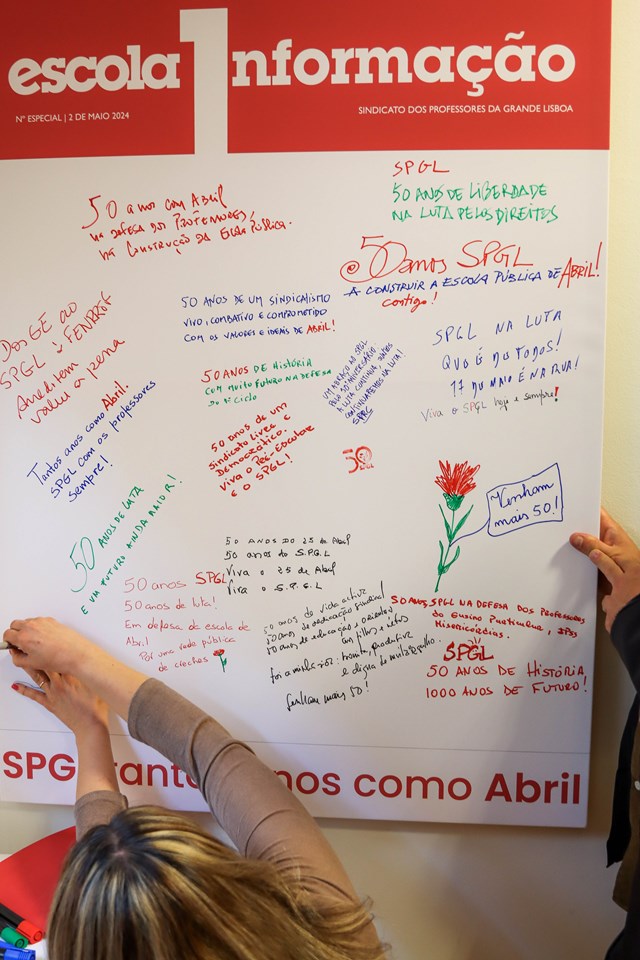 escola Informação
Nº ESPECIAL | 2 DE MAIO 2024
SINDICATO DOS PROFESSORES DA GRANDE LISBOA
50 anos com Abril
na defesa dos Professores,
na Construção da Escola Pública.
SPGL
50 ANOS DE LIBERDADE
NA LUTA PELOS DIREITOS
50 anos SPGL
A CONSTRUIR A ESCOLA PÚBLICA DE ABRIL!
contigo!
50 ANOS DE UM SINDICALISMO
VIVO, COMBATIVO E COMPROMETIDO
COM OS VALORES E IDEAIS DE ABRIL!
Da SGE ao
SPGL à FENPROF
Acreditem
valeu a pena
50 ANOS DE HISTÓRIA
COM MUITO FUTURO NA DEFESA
DO 1º CICLO
UM ABRAÇO AO SPGL
PELO 50º ANIVERSÁRIO
A LUTA CONTINUA, JUNTOS
CONTINUAREMOS NA LUTA!
SPRC
SPGL NA LUTA
QUE É DE TODOS!
17 DE MAIO É NA RUA!
Viva o SPGL hoje e sempre!
Tantos anos como Abril.
SPGL com os professores
sempre!
50 anos de um
Sindicato Livre e
Democrático.
Viva o Pré-Escolar
e o SPGL!
50
Venham
mais 50!
50 ANOS DE LUTA
E UM FUTURO AINDA MAIOR!
50 ANOS DO 25 de Abril
50 anos do S.P.G.L
Viva o 25 de Abril
Viva o S.P.G.L
50 anos SPGL
50 anos de luta!
Em defesa da escola de
Abril
Por uma rede pública
de creches
50 anos de vida activa
50 anos de dedicação sindical
50 anos de educação e orientação
com filhos e netos
foi a minha vida: bonita, produtiva
e digna de muito orgulho.
Venham mais 50!
50 ANOS, SPGL NA DEFESA DOS PROFESSORES
do Ensino Particular, IPSS
Misericórdias.
SPGL
50 ANOS DE HISTÓRIA
1000 ANOS DE FUTURO!
SPG anos como Abril